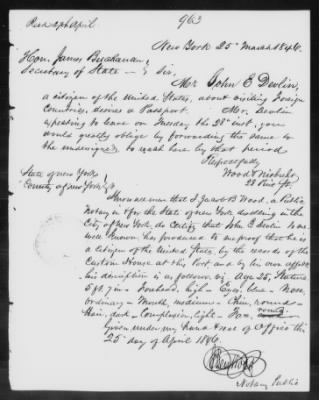 Recd 2 April
963
New York 25 March 1846.
Hon. James Buchanan,
Secretary of State — Sir,
Mr John E Devlin,
a citizen of the United States, about visiting Foreign
Countries, desires a Passport. Mr. Devlin
expecting to leave on Tuesday the 28 inst., you
would greatly oblige by forwarding the same to
the undersigned to reach here by that period
Respectfully
Wood & Niebuhr
23 Pine St.
State of New York
County of New York
Know all men that I Jacob B Wood, a Public
Notary in & for the State of New York dwelling in the
City of New York, do Certify that John E Devlin to me
well known has produced to me proof that he is
a citizen of the United States, by the records of the
Custom House at this Port, and by his own affidt
his discription is as follows, viz, Age 25, Stature
5 ft, 7 in - Forehead, high - Eyes, blue - Nose,
ordinary - Mouth, medium - Chin, round -
Hair, dark - Complexion, light - Face, round
Given under my hand & seal of Office this
25 day of April 1846.
J B Wood
Notary Public